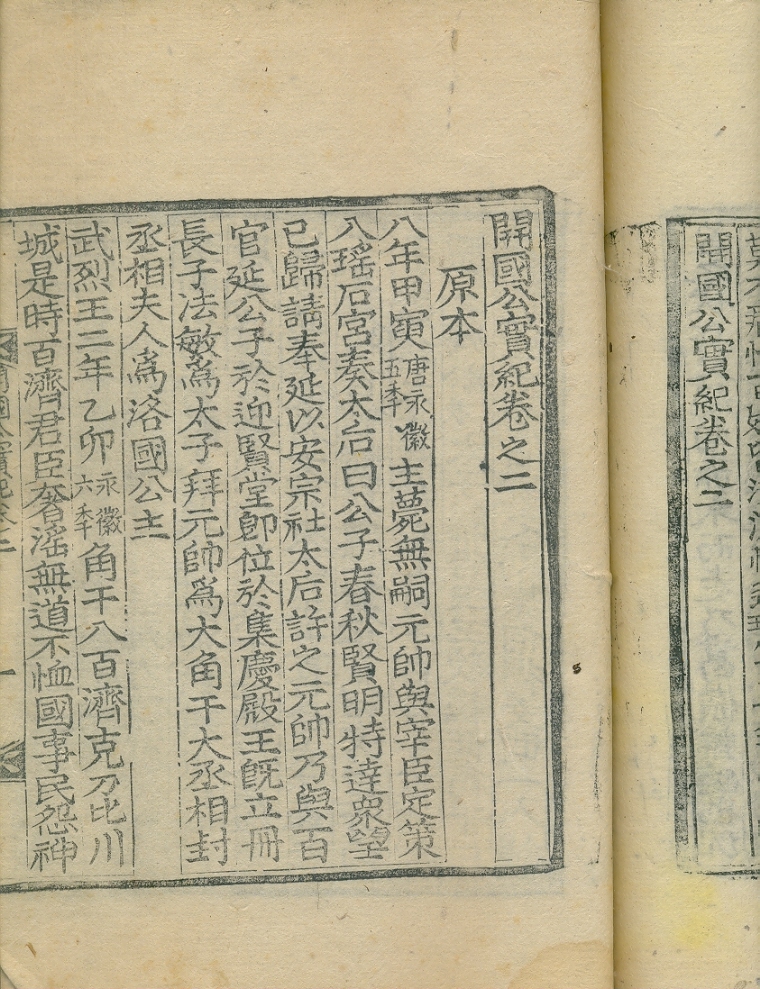 開國公實紀卷之二
莫不
開國公實紀卷之二
原本
八年甲寅唐永徽五季主薨無嗣元帥與宰臣定策
入瑤石宮奏太后曰公子春秋賢明特達衆望
已歸請奉延以安宗社太后許之元帥乃與百
官延公子於迎賢堂卽位於集慶殿王旣立冊
長子法敏爲太子拜元帥爲大角干大丞相封
丞相夫人爲洛國公主
武烈王二年乙卯永徽六季角干入百濟克刀比川
城是時百濟君臣奢滛無道不恤國事民怨神
開國公實紀卷二
一